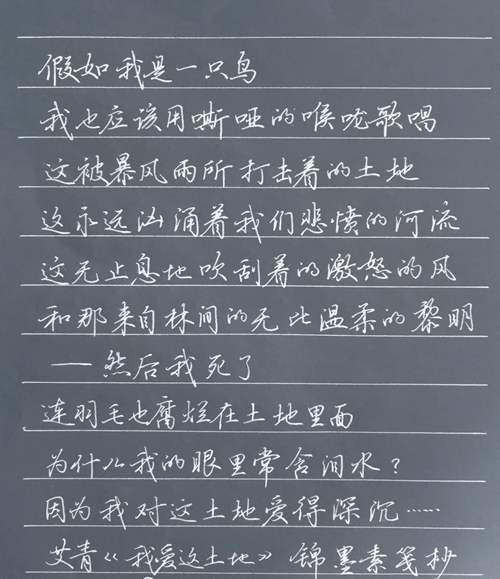 假如我是一只鸟
我也应该用嘶哑的喉咙歌唱
这被暴风雨所打击着的土地
这永远汹涌着我们悲愤的河流
这无止息地吹刮着的激怒的风
和那来自林间的无比温柔的黎明
——然后我死了
连羽毛也腐烂在土地里面
为什么我的眼里常含泪水？
因为我对这土地爱得深沉……
艾青《我爱这土地》锦墨素笺抄